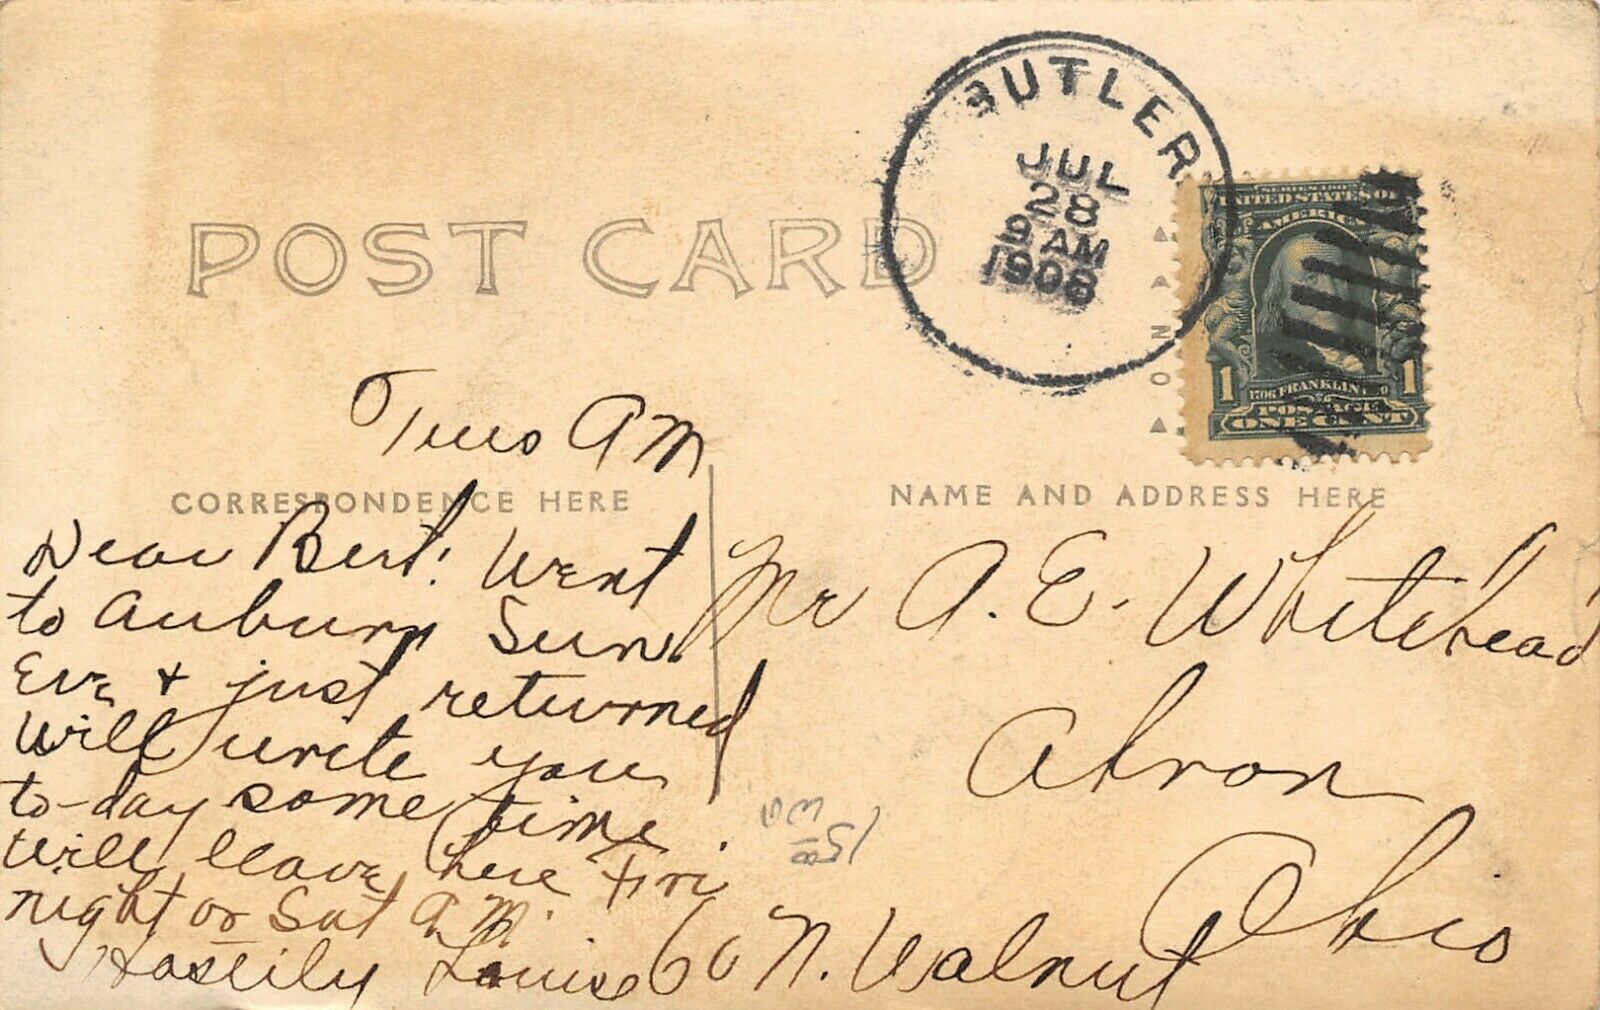 BUTLER
JUL
28
9 AM
1908
SERIES 1902
UNITED STATES OF
AMERICA
1 1706 FRANKLIN 1
POSTAGE
ONE CENT
POST CARD
Tues AM
CORRESPONDENCE HERE
Dear Bert! Went
to Auburn Sun.
Eve & just returned
will write you
to-day some time.
will leave here Fri
night or Sat A.M.
Hastily Louise
NAME AND ADDRESS HERE
Mr A. E. Whitehead
Akron
Ohio
60 N. Walnut